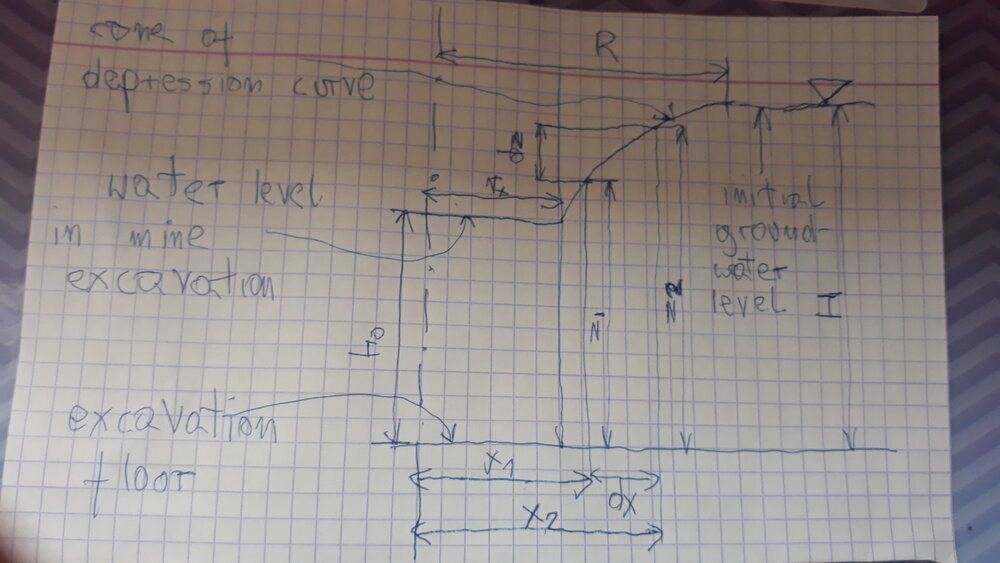 cone of
depression curve
R
dz
rx
water level
in mine
excavation
initial
ground-
water
level H
Ho
z1
z2
excavation
floor
x1
dx
x2